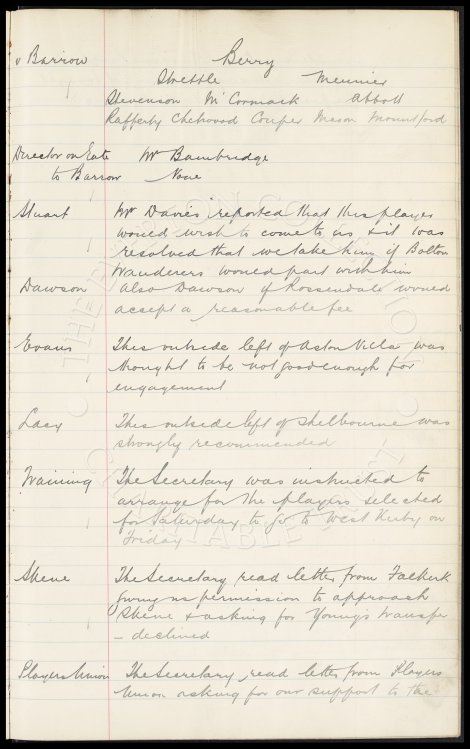 v Barrow Berry
Strettle Meunier
Stevenson McCormack Abbott
Rafferty Chetwood Couper Mason Mountford
Director on Gate Mr Bainbridge
to Barrow None
Stuart Mr Davies reported that this player
would wish to come to us & it was
resolved that we take him if Bolton
Wanderers would part with him
Dawson Also Dawson if Rossendale would
accept a reasonable fee
Evans This outside left of Aston Villa was
thought to be not good enough for
engagement
Lacy This outside left of Shelbourne was
strongly recommended
Training The Secretary was instructed to
arrange for the players selected
for Saturday to go to West Kirby on
Friday
Skene The Secretary read letter from Falkirk
giving us permission to approach
Skene & asking for Young's transfer
– declined
Players Union The Secretary read letter from Players
Union asking for our support to the